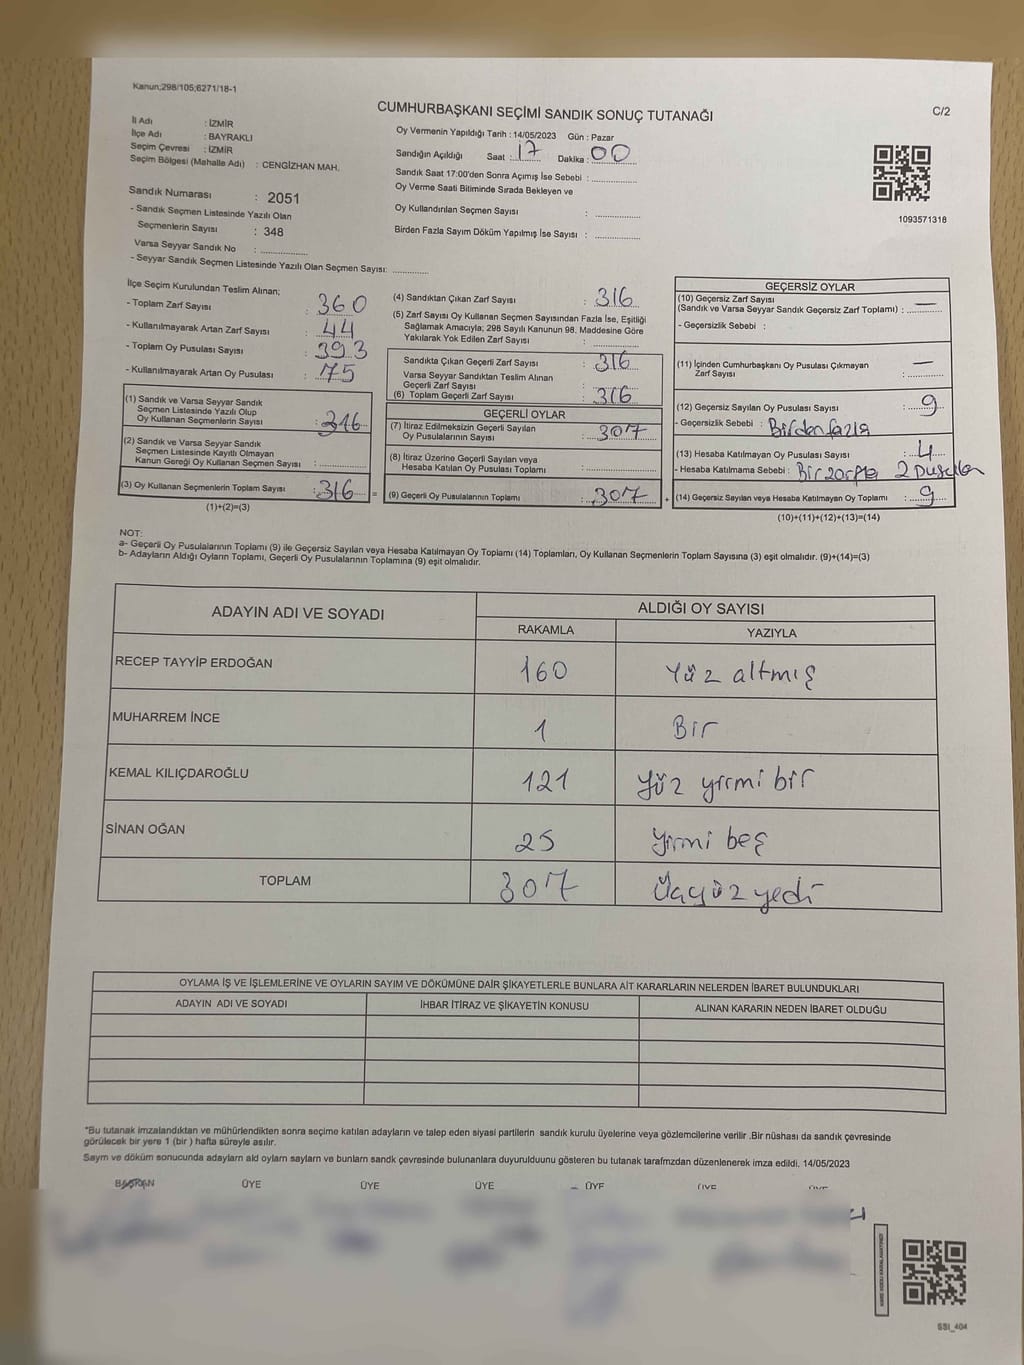 Kanun;298/105;6271/18-1
CUMHURBAŞKANI SEÇİMİ SANDIK SONUÇ TUTANAĞI
C/2
İl Adı : İZMİR
İlçe Adı : BAYRAKLI
Seçim Çevresi : İZMİR
Seçim Bölgesi (Mahalle Adı) : CENGİZHAN MAH.
Sandık Numarası : 2051
- Sandık Seçmen Listesinde Yazılı Olan
Seçmenlerin Sayısı : 348
Varsa Seyyar Sandık No : ..............
- Seyyar Sandık Seçmen Listesinde Yazılı Olan Seçmen Sayısı: ............
Oy Vermenin Yapıldığı Tarih : 14/05/2023 Gün : Pazar
Sandığın Açıldığı Saat : 17 Dakika : 00
Sandık Saat 17:00'den Sonra Açımış İse Sebebi : ..............
Oy Verme Saati Bitiminde Sırada Bekleyen ve
Oy Kullandırılan Seçmen Sayısı : ..............
Birden Fazla Sayım Döküm Yapılmış İse Sayısı : ..............
1093571318
İlçe Seçim Kurulundan Teslim Alınan;
- Toplam Zarf Sayısı : 360
- Kullanılmayarak Artan Zarf Sayısı : 44
- Toplam Oy Pusulası Sayısı : 393
- Kullanılmayarak Artan Oy Pusulası : 75
(1) Sandık ve Varsa Seyyar Sandık
Seçmen Listesinde Yazılı Olup
Oy Kullanan Seçmenlerin Sayısı : 316
(2) Sandık ve Varsa Seyyar Sandık
Seçmen Listesinde Kayıtlı Olmayan
Kanun Gereği Oy Kullanan Seçmen Sayısı : ..............
(3) Oy Kullanan Seçmenlerin Toplam Sayısı : 316 =
(1)+(2)=(3)
(4) Sandıktan Çıkan Zarf Sayısı : 316
(5) Zarf Sayısı Oy Kullanan Seçmen Sayısından Fazla İse, Eşitliği
Sağlamak Amacıyla; 298 Sayılı Kanunun 98. Maddesine Göre
Yakılarak Yok Edilen Zarf Sayısı : ..............
Sandıkta Çıkan Geçerli Zarf Sayısı : 316
Varsa Seyyar Sandıktan Teslim Alınan
Geçerli Zarf Sayısı : ..............
(6) Toplam Geçerli Zarf Sayısı : 316
GEÇERLİ OYLAR
(7) İtiraz Edilmeksizin Geçerli Sayılan
Oy Pusulalarının Sayısı : 307
(8) İtiraz Üzerine Geçerli Sayılan veya
Hesaba Katılan Oy Pusulası Toplamı : ..............
(9) Geçerli Oy Pusulalarının Toplamı : 307 +
GEÇERSİZ OYLAR
(10) Geçersiz Zarf Sayısı
(Sandık ve Varsa Seyyar Sandık Geçersiz Zarf Toplamı) : —
- Geçersizlik Sebebi :
(11) İçinden Cumhurbaşkanı Oy Pusulası Çıkmayan
Zarf Sayısı : —
(12) Geçersiz Sayılan Oy Pusulası Sayısı : 9
- Geçersizlik Sebebi : Birden fazla
(13) Hesaba Katılmayan Oy Pusulası Sayısı : 4
- Hesaba Katılmama Sebebi : Bir zarfta 2
(14) Geçersiz Sayılan veya Hesaba Katılmayan Oy Toplamı : 9
(10)+(11)+(12)+(13)=(14)
NOT:
a- Geçerli Oy Pusulalarının Toplamı (9) ile Geçersiz Sayılan veya Hesaba Katılmayan Oy Toplamı (14) Toplamları, Oy Kullanan Seçmenlerin Toplam Sayısına (3) eşit olmalıdır. (9)+(14)=(3)
b- Adayların Aldığı Oyların Toplamı, Geçerli Oy Pusulalarının Toplamına (9) eşit olmalıdır.
ADAYIN ADI VE SOYADI ALDIĞI OY SAYISI
RAKAMLA YAZIYLA
RECEP TAYYİP ERDOĞAN 160 Yüz altmış
MUHARREM İNCE 1 Bir
KEMAL KILIÇDAROĞLU 121 Yüz yirmi bir
SİNAN OĞAN 25 Yirmi beş
TOPLAM 307 Üçyüz yedi
OYLAMA İŞ VE İŞLEMLERİNE VE OYLARIN SAYIM VE DÖKÜMÜNE DAİR ŞİKAYETLERLE BUNLARA AİT KARARLARIN NELERDEN İBARET BULUNDUKLARI
ADAYIN ADI VE SOYADI İHBAR İTİRAZ VE ŞİKAYETİN KONUSU ALINAN KARARIN NEDEN İBARET OLDUĞU
*Bu tutanak imzalandıktan ve mühürlendikten sonra seçime katılan adayların ve talep eden siyasi partilerin sandık kurulu üyelerine veya gözlemcilerine verilir .Bir nüshası da sandık çevresinde
görülecek bir yere 1 (bir ) hafta süreyle asılır.
Sayım ve döküm sonucunda adayların ald oyların sayları ve bunların sandk çevresinde bulunanlara duyurulduunu gösteren bu tutanak tarafmzdan düzenlenerek imza edildi. 14/05/2023
BAŞKAN ÜYE ÜYE ÜYE ÜYE ÜYE ÜYE
SSI_404